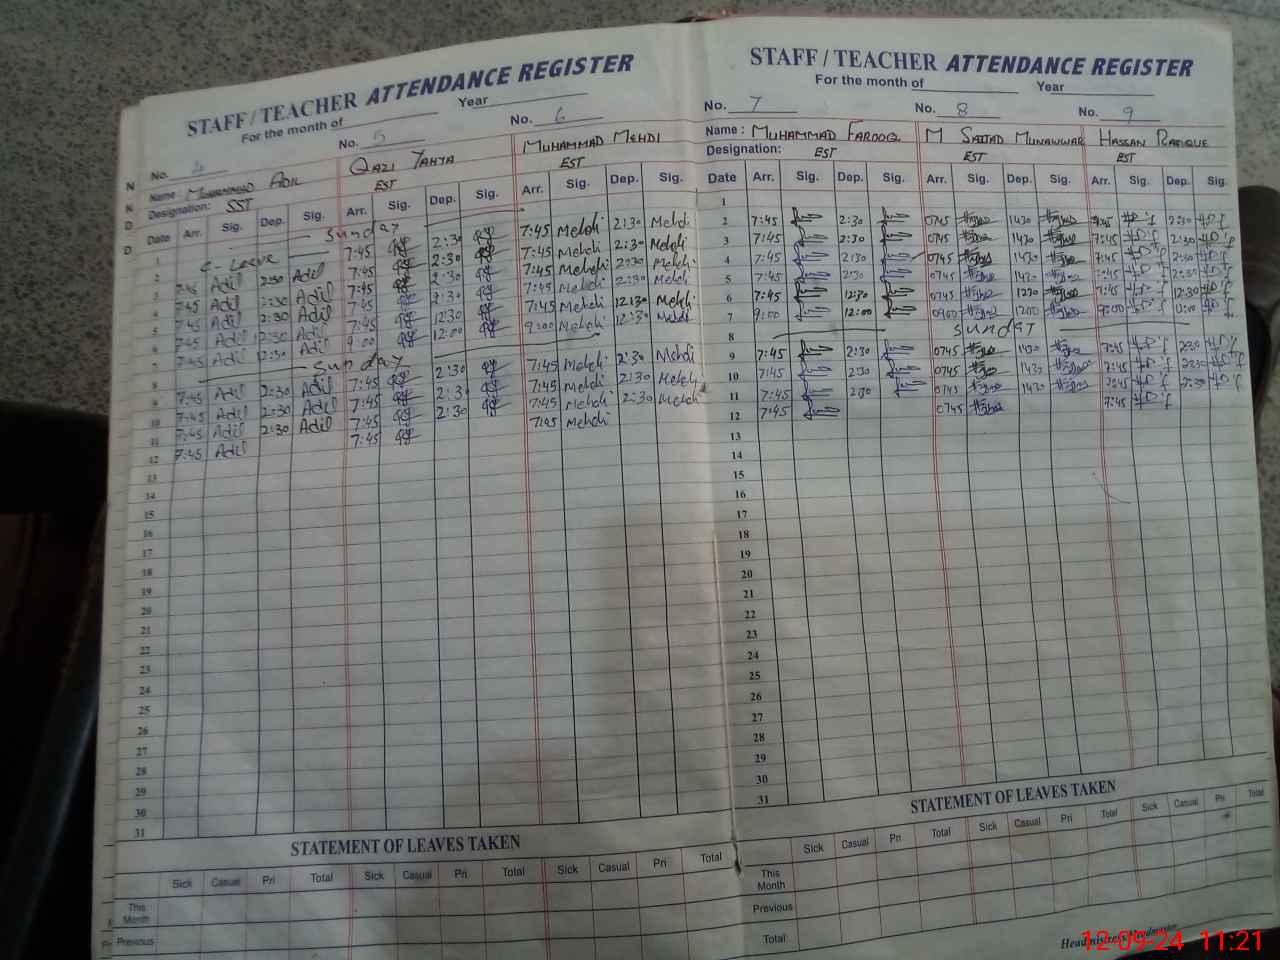 STAFF / TEACHER ATTENDANCE REGISTER
For the month of Year
No. 4 No. 5 No. 6
Name : MUHAMMAD ADIL QAZI YAHYA MUHAMMAD MEHDI
Designation: SST EST EST
Date Arr. Sig. Dep. Sig. Arr. Sig. Dep. Sig. Arr. Sig. Dep. Sig.
1 Sunday
2 C-Leave 7:45 2:30 7:45 Mehdi 2:30 Mehdi
3 7:45 Adil 2:30 Adil 7:45 2:30 7:45 Mehdi 2:30 Mehdi
4 7:45 Adil 2:30 Adil 7:45 2:30 7:45 Mehdi 2:30 Mehdi
5 7:45 Adil 2:30 Adil 7:45 2:30 7:45 Mehdi 2:30 Mehdi
6 7:45 Adil 12:30 Adil 7:45 12:30 7:45 Mehdi 12:30 Mehdi
7 7:45 Adil 12:30 Adil 9:00 12:00 9:00 Mehdi 12:30 Mehdi
8 Sunday
9 7:45 Adil 2:30 Adil 7:45 2:30 7:45 Mehdi 2:30 Mehdi
10 7:45 Adil 2:30 Adil 7:45 2:30 7:45 Mehdi 2:30 Mehdi
11 7:45 Adil 2:30 Adil 7:45 2:30 7:45 Mehdi 2:30 Mehdi
12 7:45 Adil 7:45 7:45 Mehdi
13
14
15
16
17
18
19
20
21
22
23
24
25
26
27
28
29
30
31
STATEMENT OF LEAVES TAKEN
Sick Casual Pri Total Sick Casual Pri Total Sick Casual Pri Total
This Month
Previous
STAFF / TEACHER ATTENDANCE REGISTER
For the month of Year
No. 7 No. 8 No. 9
Name : MUHAMMAD FAROOQ M SAJJAD MUNAWWAR HASSAN RAFIQUE
Designation: EST EST EST
Date Arr. Sig. Dep. Sig. Arr. Sig. Dep. Sig. Arr. Sig. Dep. Sig.
1
2 7:45 2:30 0745 1430 7:45 2:30
3 7:45 2:30 0745 1430 7:45 2:30
4 7:45 2:30 0745 1430 7:45 2:30
5 7:45 2:30 0745 1430 7:45 2:30
6 7:45 12:30 0745 1230 7:45 12:30
7 9:00 12:00 0900 1200 9:00
8 Sunday
9 7:45 2:30 0745 1430 7:45 2:30
10 7:45 2:30 0745 1430 7:45 2:30
11 7:45 2:30 0745 1430 7:45 2:30
12 7:45 0745 7:45
13
14
15
16
17
18
19
20
21
22
23
24
25
26
27
28
29
30
31
STATEMENT OF LEAVES TAKEN
Sick Casual Pri Total Sick Casual Pri Total Sick Casual Pri Total
This Month
Previous
Total
Headmistress/Headmaster
12-09-24 11:21